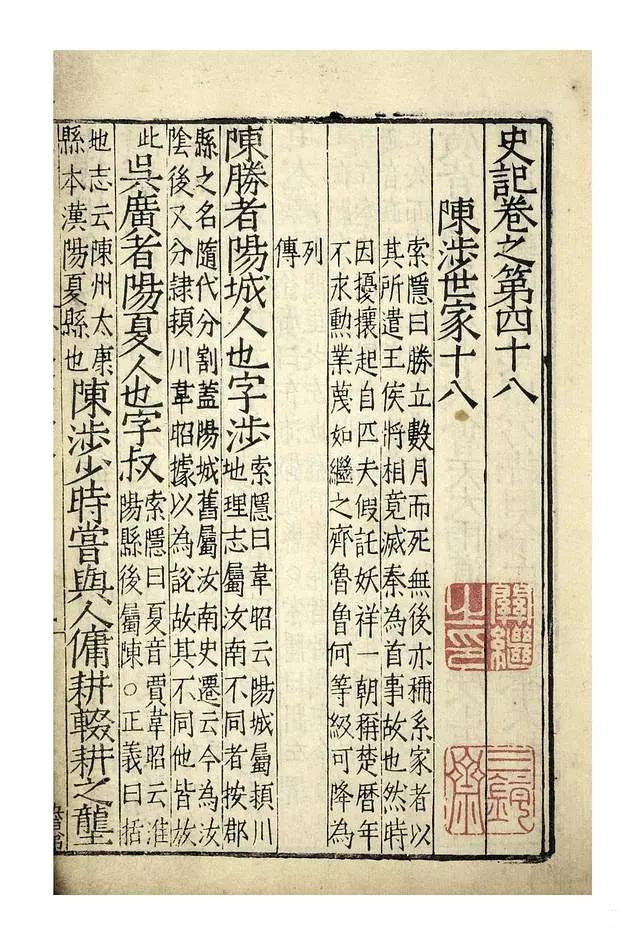 史記卷之第四十八
陳涉世家十八
索隱曰勝立數月而死無後亦稱系家者以
其所遣王侯將相竟滅秦為首事故也然時
因擾攘起自匹夫假託妖祥一朝稱楚曆年
不永勳業蔑如繼之齊魯魯何等級可降為
列
傳
陳勝者陽城人也字涉
索隱曰韋昭云陽城屬頴川
地理志屬汝南不同者按郡
縣之名隨代分割蓋陽城舊屬汝南史遷云今為汝
陰後又分隸頴川韋昭據以為說故其不同他皆放
此
吳廣者陽夏人也字叔
索隱曰夏音賈韋昭云淮
陽縣後屬陳○正義曰括
地志云陳州太康
縣本漢陽夏縣也
陳涉少時嘗與人傭耕輟耕之壟